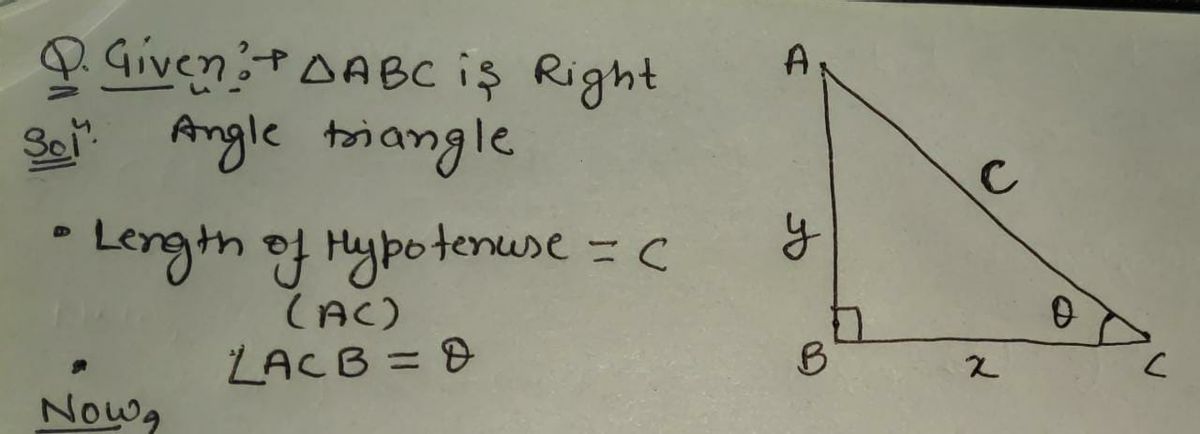 Q. Given :→ △ABC is Right
Solⁿ. Angle triangle
• Length of Hypotenuse = C
(AC)
• ∠ACB = θ
Now,
A
C
y
θ
B
x
C